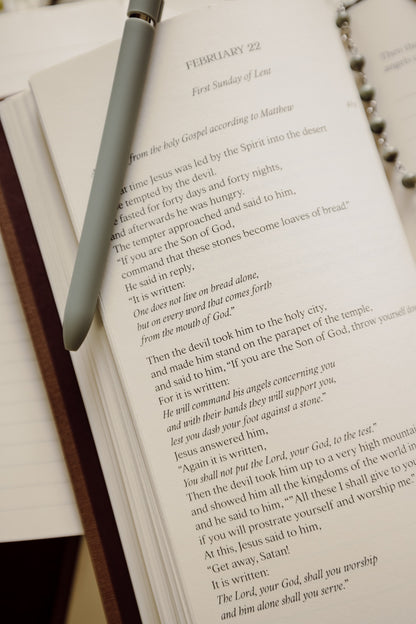 FEBRUARY 22
First Sunday of Lent
from the holy Gospel according to Matthew
time Jesus was led by the Spirit into the desert
tempted by the devil.
fasted for forty days and forty nights,
and afterwards he was hungry.
The tempter approached and said to him,
"If you are the Son of God,
command that these stones become loaves of bread."
He said in reply,
"It is written:
One does not live on bread alone,
but on every word that comes forth
from the mouth of God."
Then the devil took him to the holy city,
and made him stand on the parapet of the temple,
and said to him, "If you are the Son of God, throw yourself
For it is written:
He will command his angels concerning you
and with their hands they will support you,
lest you dash your foot against a stone."
Jesus answered him,
"Again it is written,
You shall not put the Lord, your God, to the test."
Then the devil took him up to a very high
and showed him all the kingdoms of the world in
and he said to him, "" All these I shall give to you
if you will prostrate yourself and worship me."
At this, Jesus said to him,
"Get away, Satan!
It is written:
The Lord, your God, shall you worship
and him alone shall you serve."